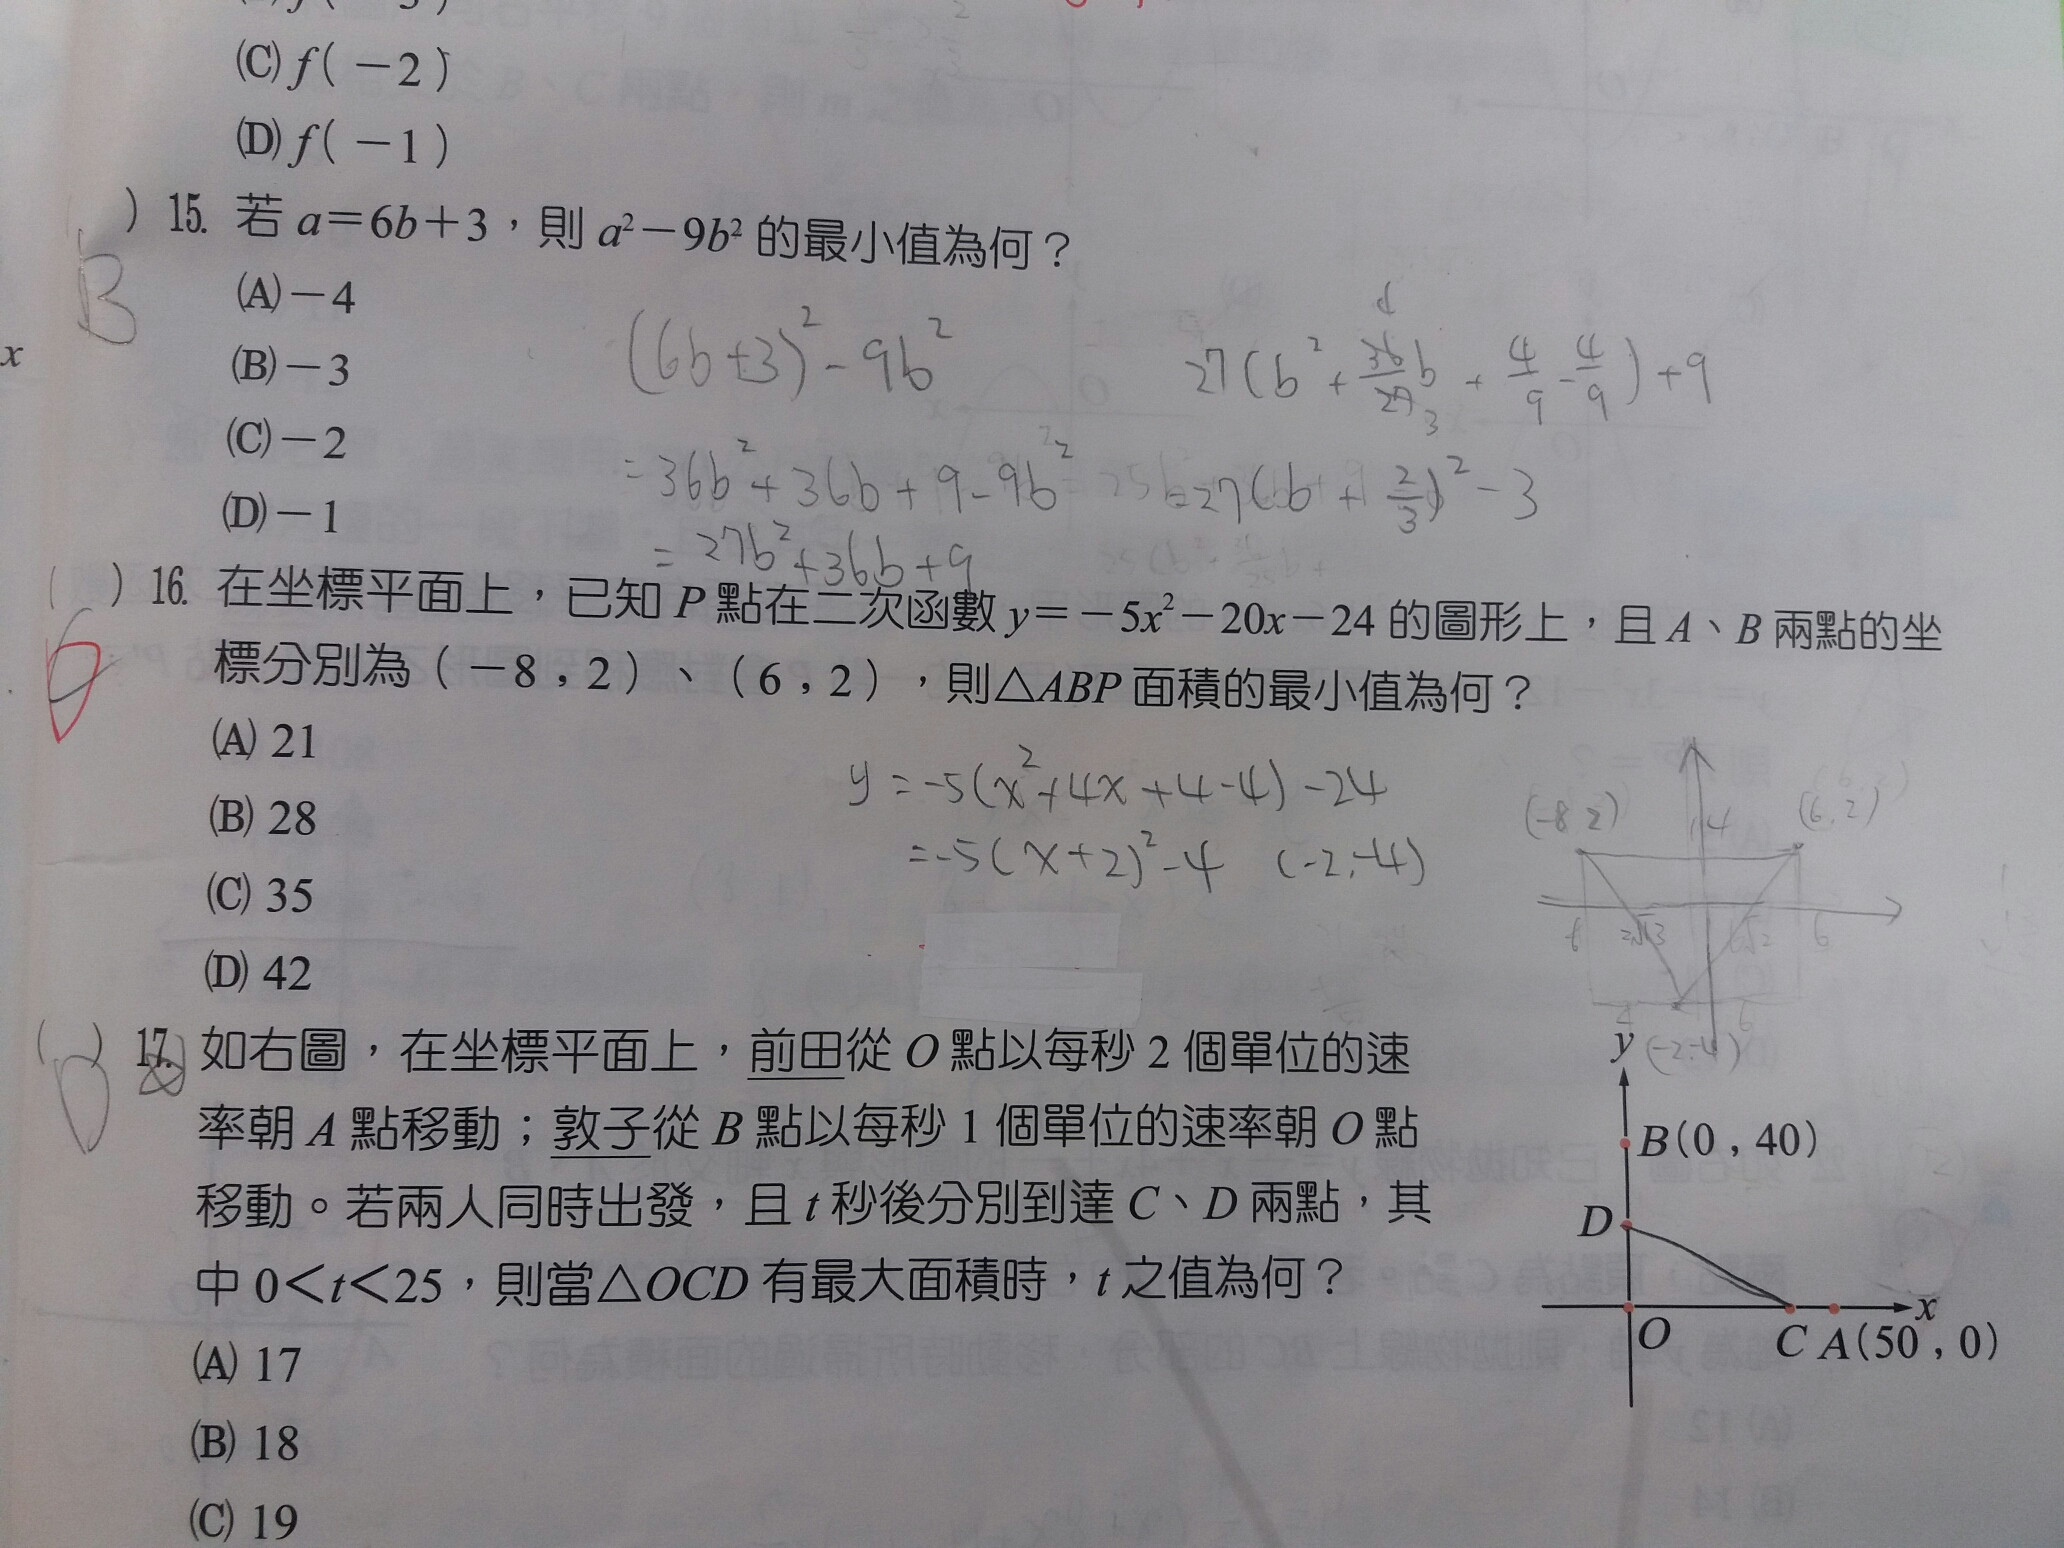 (C) f( −2 )
(D) f( −1 )
) 15. 若 a=6b+3，則 a²−9b² 的最小值為何？
B
(A) −4
(B) −3
(C) −2
(D) −1
x
(6b+3)² - 9b²
= 36b² + 36b + 9 - 9b²
= 27b² + 36b + 9
27(b² + 36/27 b + 4/9 - 4/9) + 9
4
3
= 27(b + 2/3)² - 3
( ) 16. 在坐標平面上，已知 P 點在二次函數 y=−5x²−20x−24 的圖形上，且 A、B 兩點的坐
標分別為（−8 , 2）、（6 , 2），則△ABP 面積的最小值為何？
(A) 21
(B) 28
(C) 35
(D) 42
y = -5(x²+4x+4-4) -24
= -5(x+2)² -4 (-2,-4)
(-8 2)
14
(6,2)
6
(-2,-4)
( ) 17. 如右圖，在坐標平面上，前田從 O 點以每秒 2 個單位的速
率朝 A 點移動；敦子從 B 點以每秒 1 個單位的速率朝 O 點
移動。若兩人同時出發，且 t 秒後分別到達 C、D 兩點，其
中 0＜t＜25，則當△OCD 有最大面積時，t 之值為何？
(A) 17
(B) 18
(C) 19
y
B(0 , 40)
D
O
C
A(50 , 0)
x